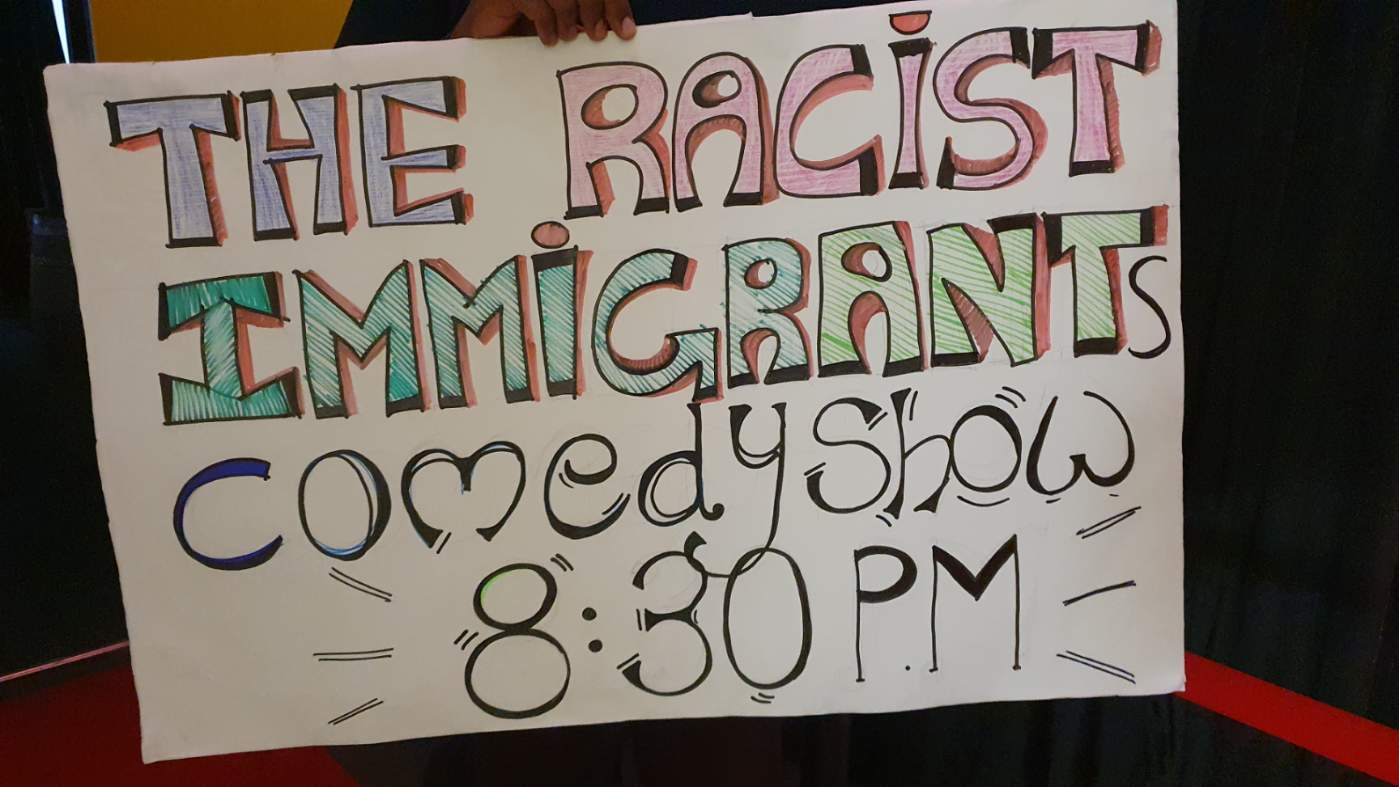 THE RACiST
IMMiGRANTs
comedy show
8:30 P.M